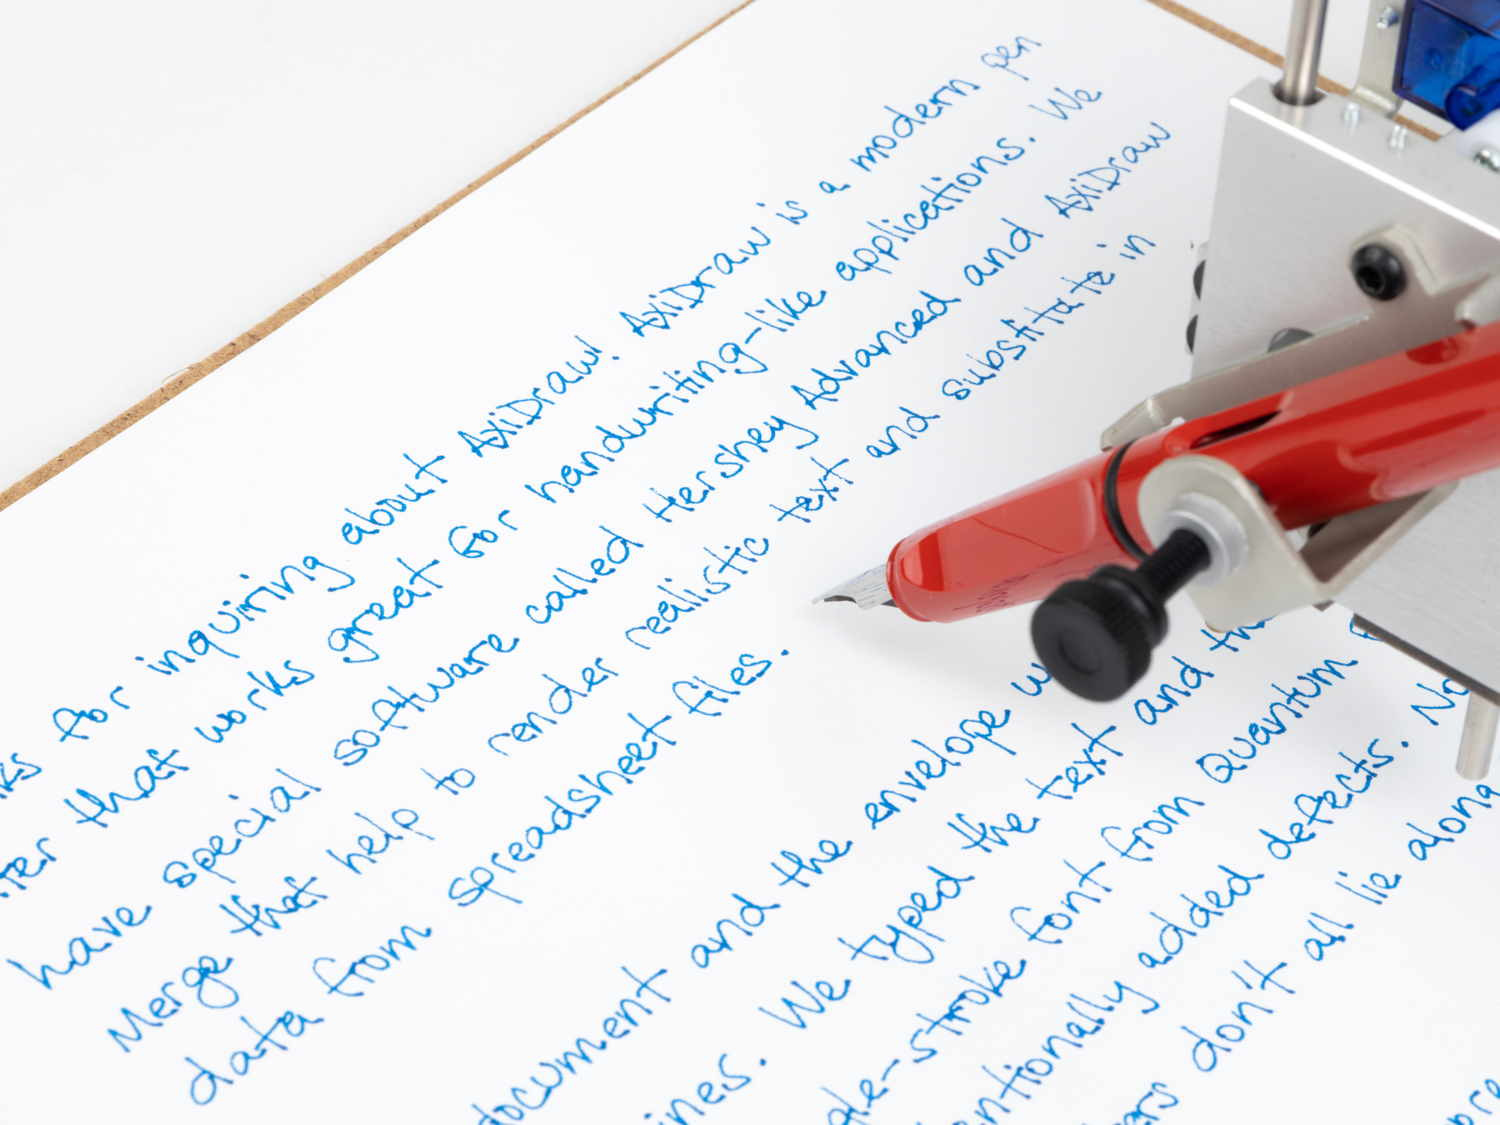 for inquiring about AxiDraw! AxiDraw is a modern pen
that works great for handwriting-like applications. We
have special software called Hershey Advanced and AxiDraw
Merge that help to render realistic text and substitute in
data from spreadsheet files.
document and the envelope
We typed the text and
stroke font from Quantum
added defects. No
don't all lie along